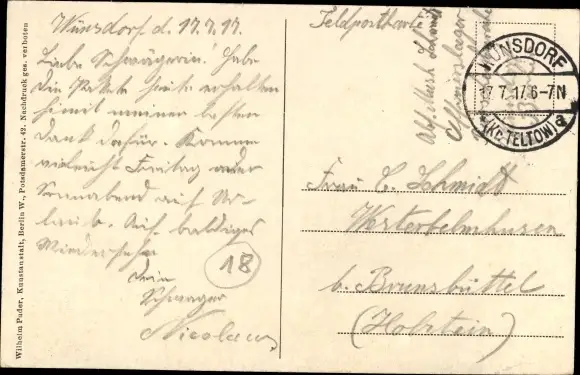 Wilhelm Puder, Kunstanstalt, Berlin W., Potsdamerstr. 42. Nachdruck ges. verboten
Wünsdorf d. 17.7.17.
Liebe Schwägerin! Habe
die Pakete heute erhalten
hiermit meinen besten
Dank dafür. Komme
vielleicht Freitag oder
Sonnabend auf Ur-
laub. Auf baldiges
Wiedersehn
Dein
Schwager
Nicolaus
18
Feldpostkarte
WÜNSDORF
17.7.17.6-7N
(Kr. TELTOW)
a
Frau C. Schmidt
Westerbelmhusen
b. Brunsbüttel
(Holstein)